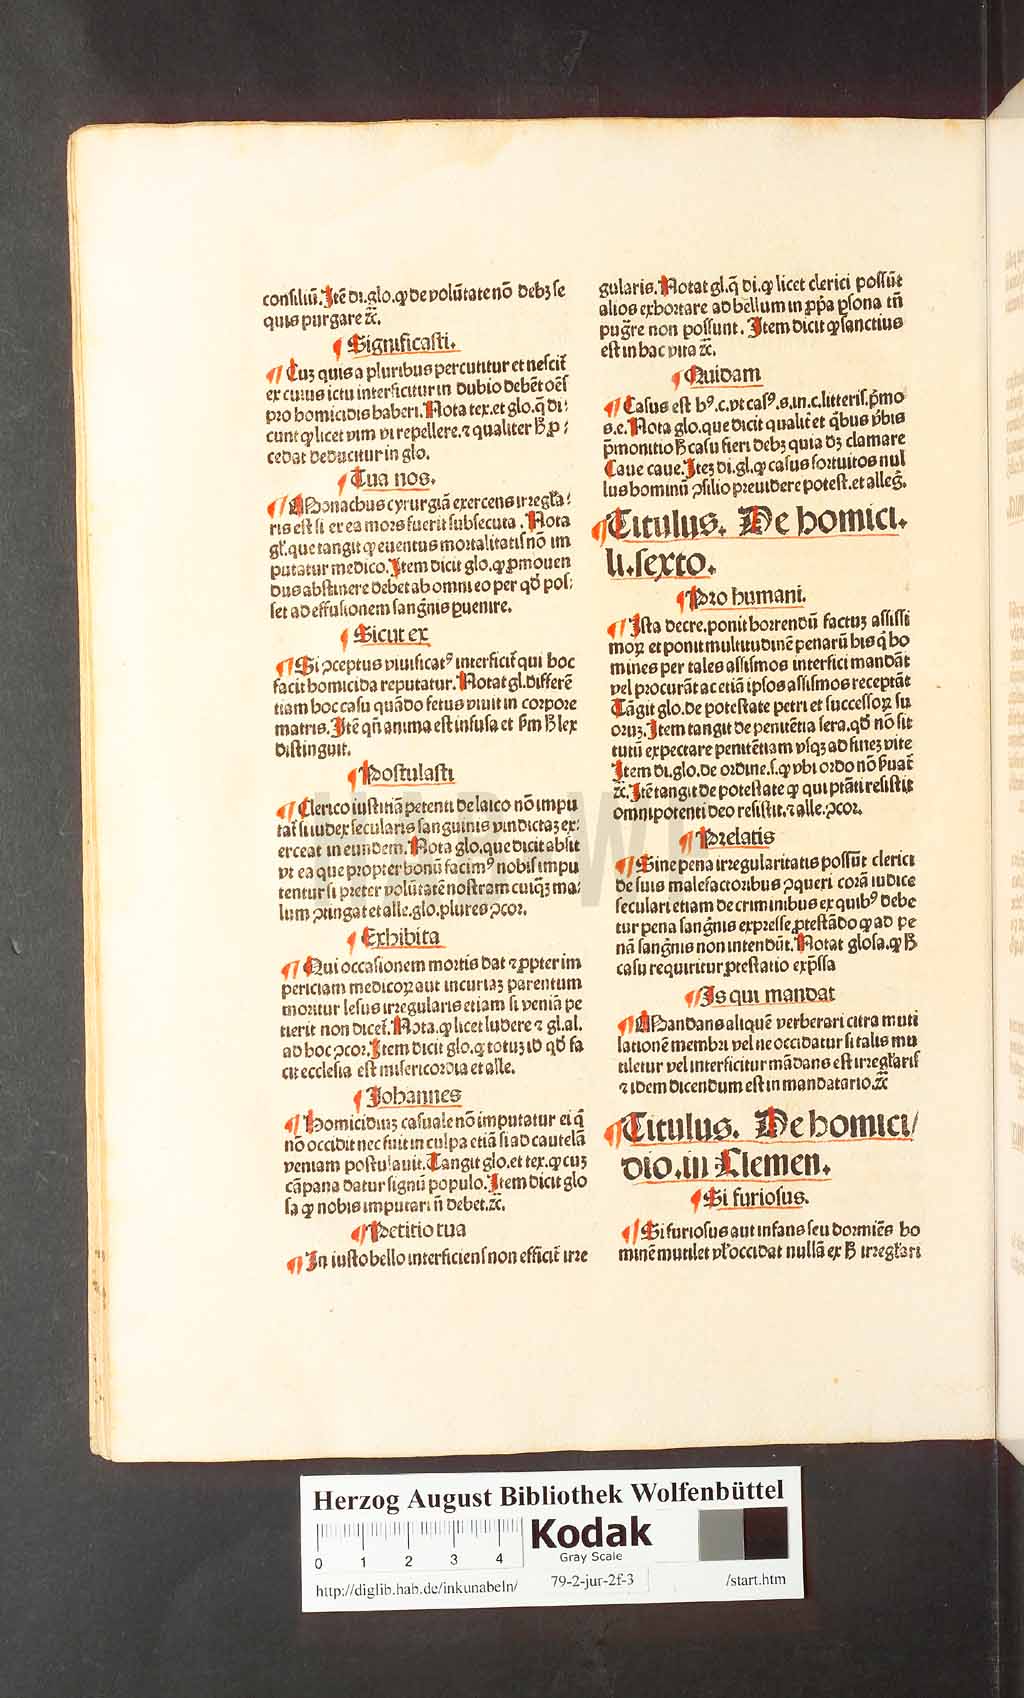 consiliũ. Itẽ di. glo. ꝙ de volũtate nõ debꝫ se
quis purgare ⁊c̃.
¶ Significasti.
¶ Cuꝫ quis a pluribus percutitur et nescit̃
ex cuius ictu interficitur in dubio debẽt oẽs
pro homicidis haberi. Nota tex. et glo. q̃ di⸗
cunt ꝙ licet vim vi repellere. ⁊ qualiter ħ ꝓ⸗
cedat deducitur in glo.
¶ Tua nos.
¶ Monachus cyrurgiã exercens irregl'a⸗
ris est si ex ea mors fuerit subsecuta. Nota
gl'. que tangit ꝙ euentus mortalitatis nõ im
putatur medico. Item dicit glo. ꝙ ꝓmouen
dus abstinere debet ab omni eo per qď pos⸗
set ad effusionem sang̃nis ꝑuenire.
¶ Sicut ex
¶ Si ꝯceptus viuificatꝰ interficit̃ qui hoc
facit homicida reputatur. Notat gl. differẽ
tiam hoc casu quãdo fetus viuit in corpore
matris. Itẽ qñ anima est infusa et ẜm ħ lex
distinguit.
¶ Postulasti
¶ Clerico iustitiã petenti de laico nõ impu
tat̃ si iudex secularis sanguinis vindictaꝫ ex⸗
erceat in eundem. Nota glo. que dicit absit
vt ea que propter bonũ facimꝰ nobis impu
tentur si preter volũtatẽ nostram cuiqꝫ ma⸗
lum ꝯtingat et alle. glo. plures ꝯcor.
¶ Exhibita
¶ Qui occasionem mortis dat ⁊ ꝓpter im
periciam medicoꝝ aut incuriaꝫ parentum
moritur lesus irregularis etiam si veniã pe
tierit non dicet̃. Nota. ꝙ licet ludere ⁊ gl. al.
ad hoc ꝯcor. Item dicit glo. ꝙ totuꝫ id qď fa
cit ecclesia est misericordia et alle.
¶ Johannes
¶ Homicidiuꝫ casuale nõ imputatur ei q̃
nõ occidit nec fuit in culpa etiã si ad cautelã
veniam postulauit. Tangit glo. et tex. ꝙ cuꝫ
cãpana datur signũ populo. Item dicit glo
sa ꝙ nobis imputari ñ debet. ⁊c̃.
¶ Petitio tua
¶ In iusto bello interficiens non efficit̃ irre
gularis. Notat gl. q̃ di. ꝙ licet clerici possũt
alios exhortare ad bellum in ꝓp̃a ꝑsona tñ
pug̃re non possunt. Item dicit ꝙ sanctius
est in hac vita ⁊c̃.
¶ Quidam
¶ Casus est hꝰ. c. vt casꝰ. s. in. c. litteris. p̃mo
s. e. Nota glo. que dicit qualit̃ et q̃bus v̾bis
p̃monitio ħ casu fieri debꝫ quia dꝫ clamare
Caue caue. Iteꝫ di. gl. ꝙ casus fortuitos nul
lus hominũ ꝯsilio preuidere potest. et alleg̃.
¶ Titulus. De homici.
li. sexto.
¶ Pro humani.
¶ Ista decre. ponit horrendũ factuꝫ assissi
moꝝ et ponit multitudinẽ penarũ his q̃ ho
mines per tales assismos interfici mandãt
vel procurãt ac etiã ipsos assismos receptãt
Tãgit glo. de potestate petri et successoꝝ su
oruꝫ. Item tangit de penitẽtia sera. qď nõ sit
tutũ expectare penitẽtiam vsqꝫ ad fineꝫ vite
Item di. glo. de ordine. s. ꝙ vbi ordo nõ ẜuat̃
⁊c̃. Itẽ tangit de potestate ꝙ qui ptãti resistit
omnipotenti deo resistit. ⁊ alle. ꝯcor.
¶ Prelatis
¶ Sine pena irregularitatis possũt clerici
de suis malefactoribus ꝯqueri corã iudice
seculari etiam de criminibus ex quibꝰ debe
tur pena sang̃nis expresse ꝓtestãdo ꝙ ad pe
nã sang̃nis non intendũt. Notat glosa. ꝙ ħ
casu requiritur ꝓtestatio exp̃ssa
¶ Is qui mandat
¶ Mandans aliquẽ verberari citra muti
lationẽ membri vel ne occidatur si talis mu
tiletur vel interficitur mãdans est irregl'aris
⁊ idem dicendum est in mandatario. ⁊c̃
¶ Titulus. De homici/
dio. in Clemen.
¶ Si furiosus.
¶ Si furiosus aut infans seu dormiẽs ho
minẽ mutilet vl' occidat nullã ex ħ irregl'ari
HAB WF
Herzog August Bibliothek Wolfenbüttel
0 1 2 3 4
Kodak
Gray Scale
http://diglib.hab.de/inkunabeln/ 79-2-jur-2f-3 /start.htm